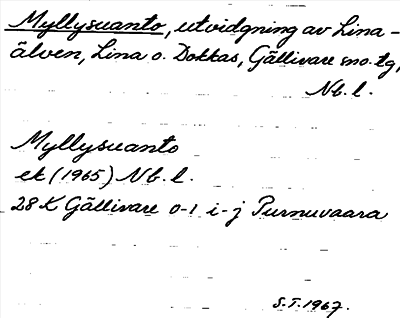 Myllysuanto, utvidgning av Lina-
älven, Lina o. Dokkas, Gällivare sno. tg,
Nb. l.
Myllysuanto
ek (1965) Nb. l.
28 K Gällivare 0-1 i-j Purnuvaara
S.T. 1967.